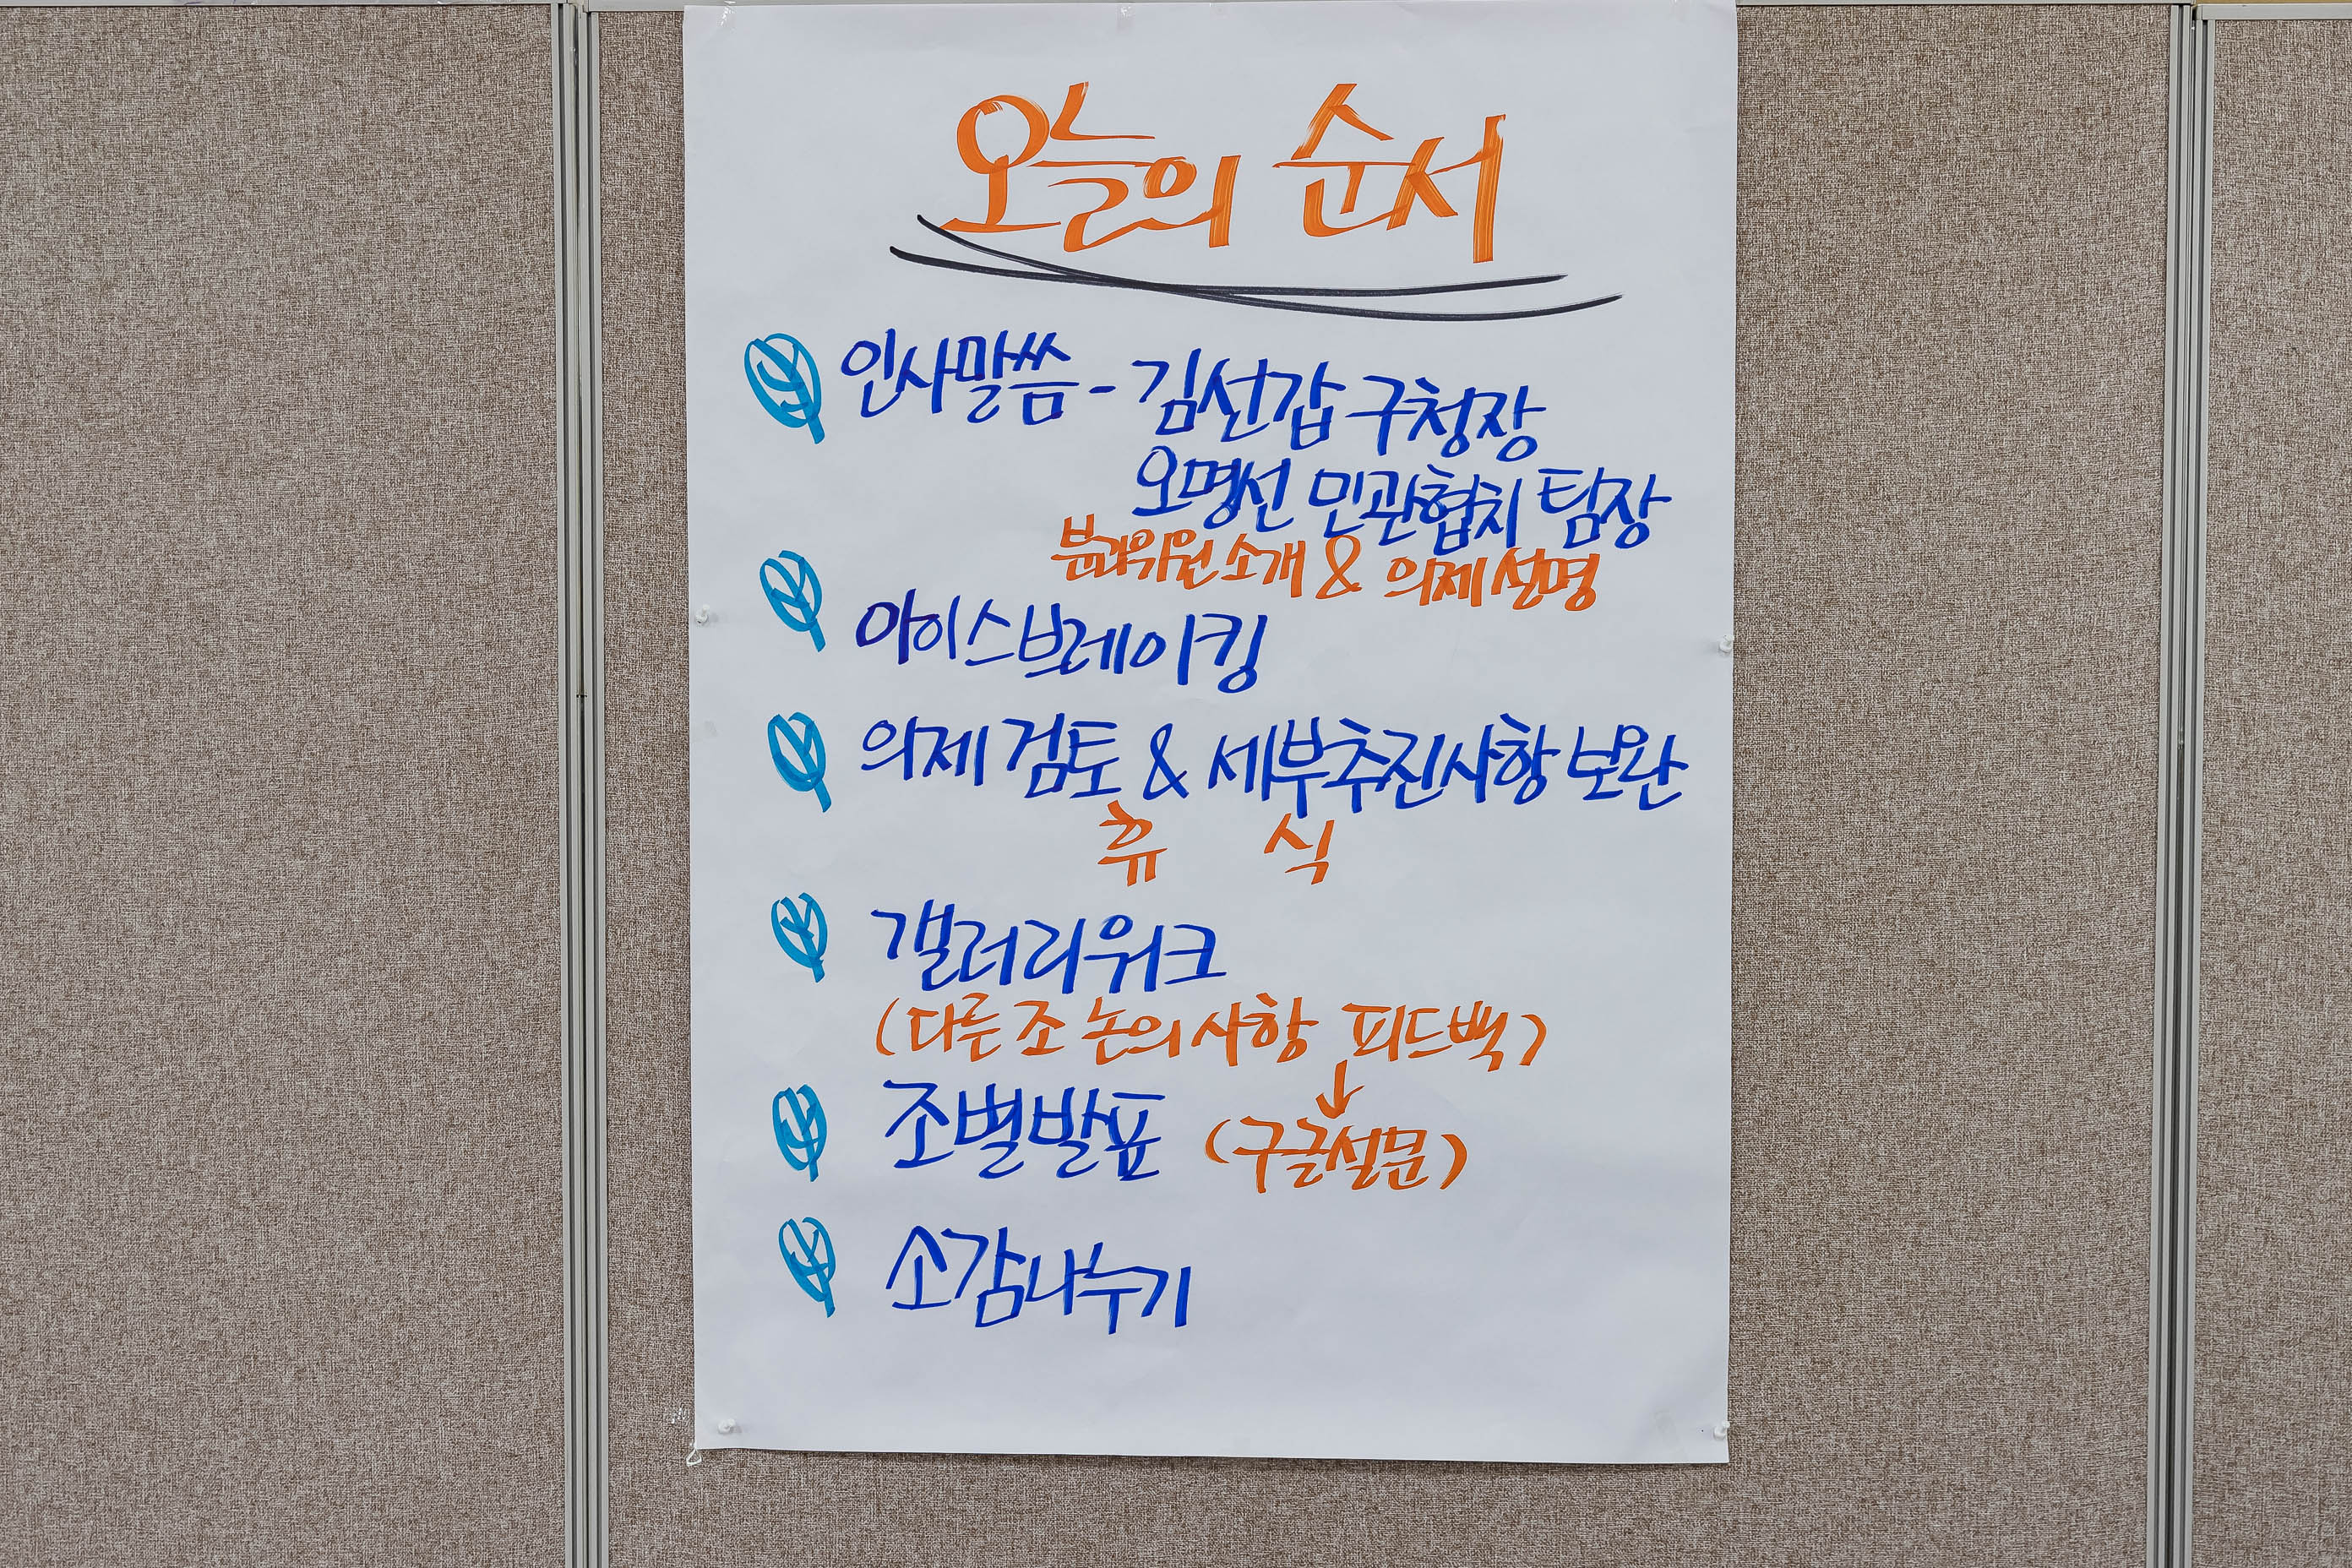 오늘의 순서
인사말씀 - 김선갑 구청장
오명선 민관협치 팀장
분과위원 소개 & 의제 설명
아이스브레이킹
의제 검토 & 세부추진사항 보완
휴 식
갤러리워크
(다른 조 논의 사항 피드백)
↓
조별발표 (구글설문)
소감나누기